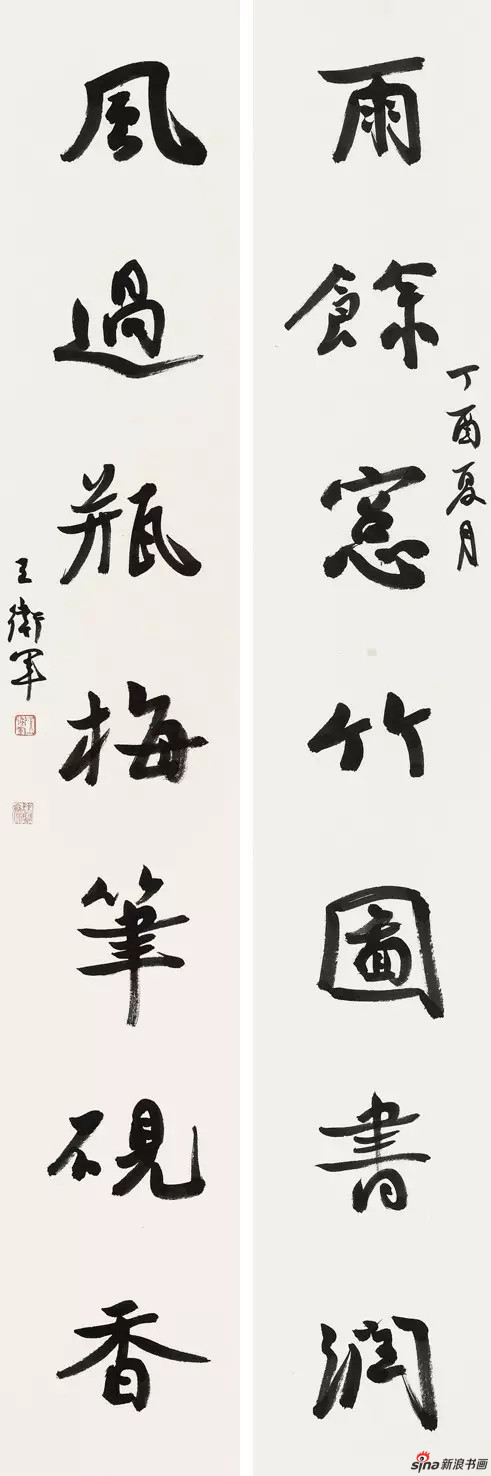 丁酉夏月
雨餘窓竹圖書潤
風過瓶梅筆硯香
王衛軍
sina新浪书画